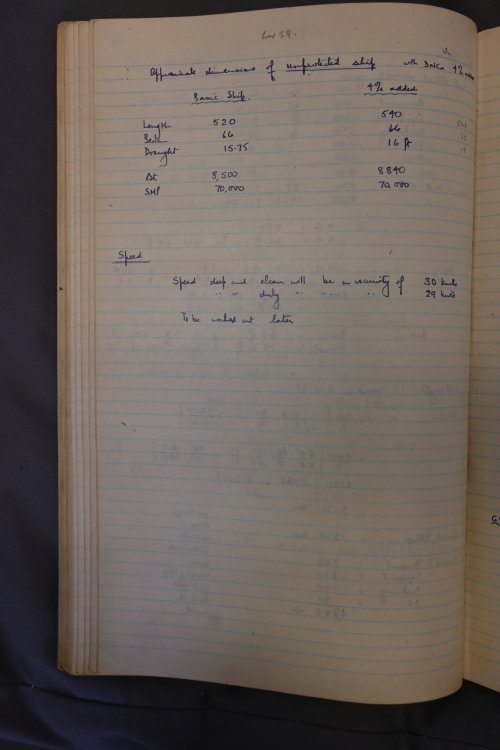 Approximate dimensions of unprotected ship with DNCs 4% added
Basic Ship. 4% added
Length 520 540
Beam 66 66
Draught 15.75 16 ft
Δt 8,500 8840
SHP 70,000 70,000
Speed
Speed deep and clean will be in vicinity of 30 knots
" " dirty " " " 29 knots
To be worked out later